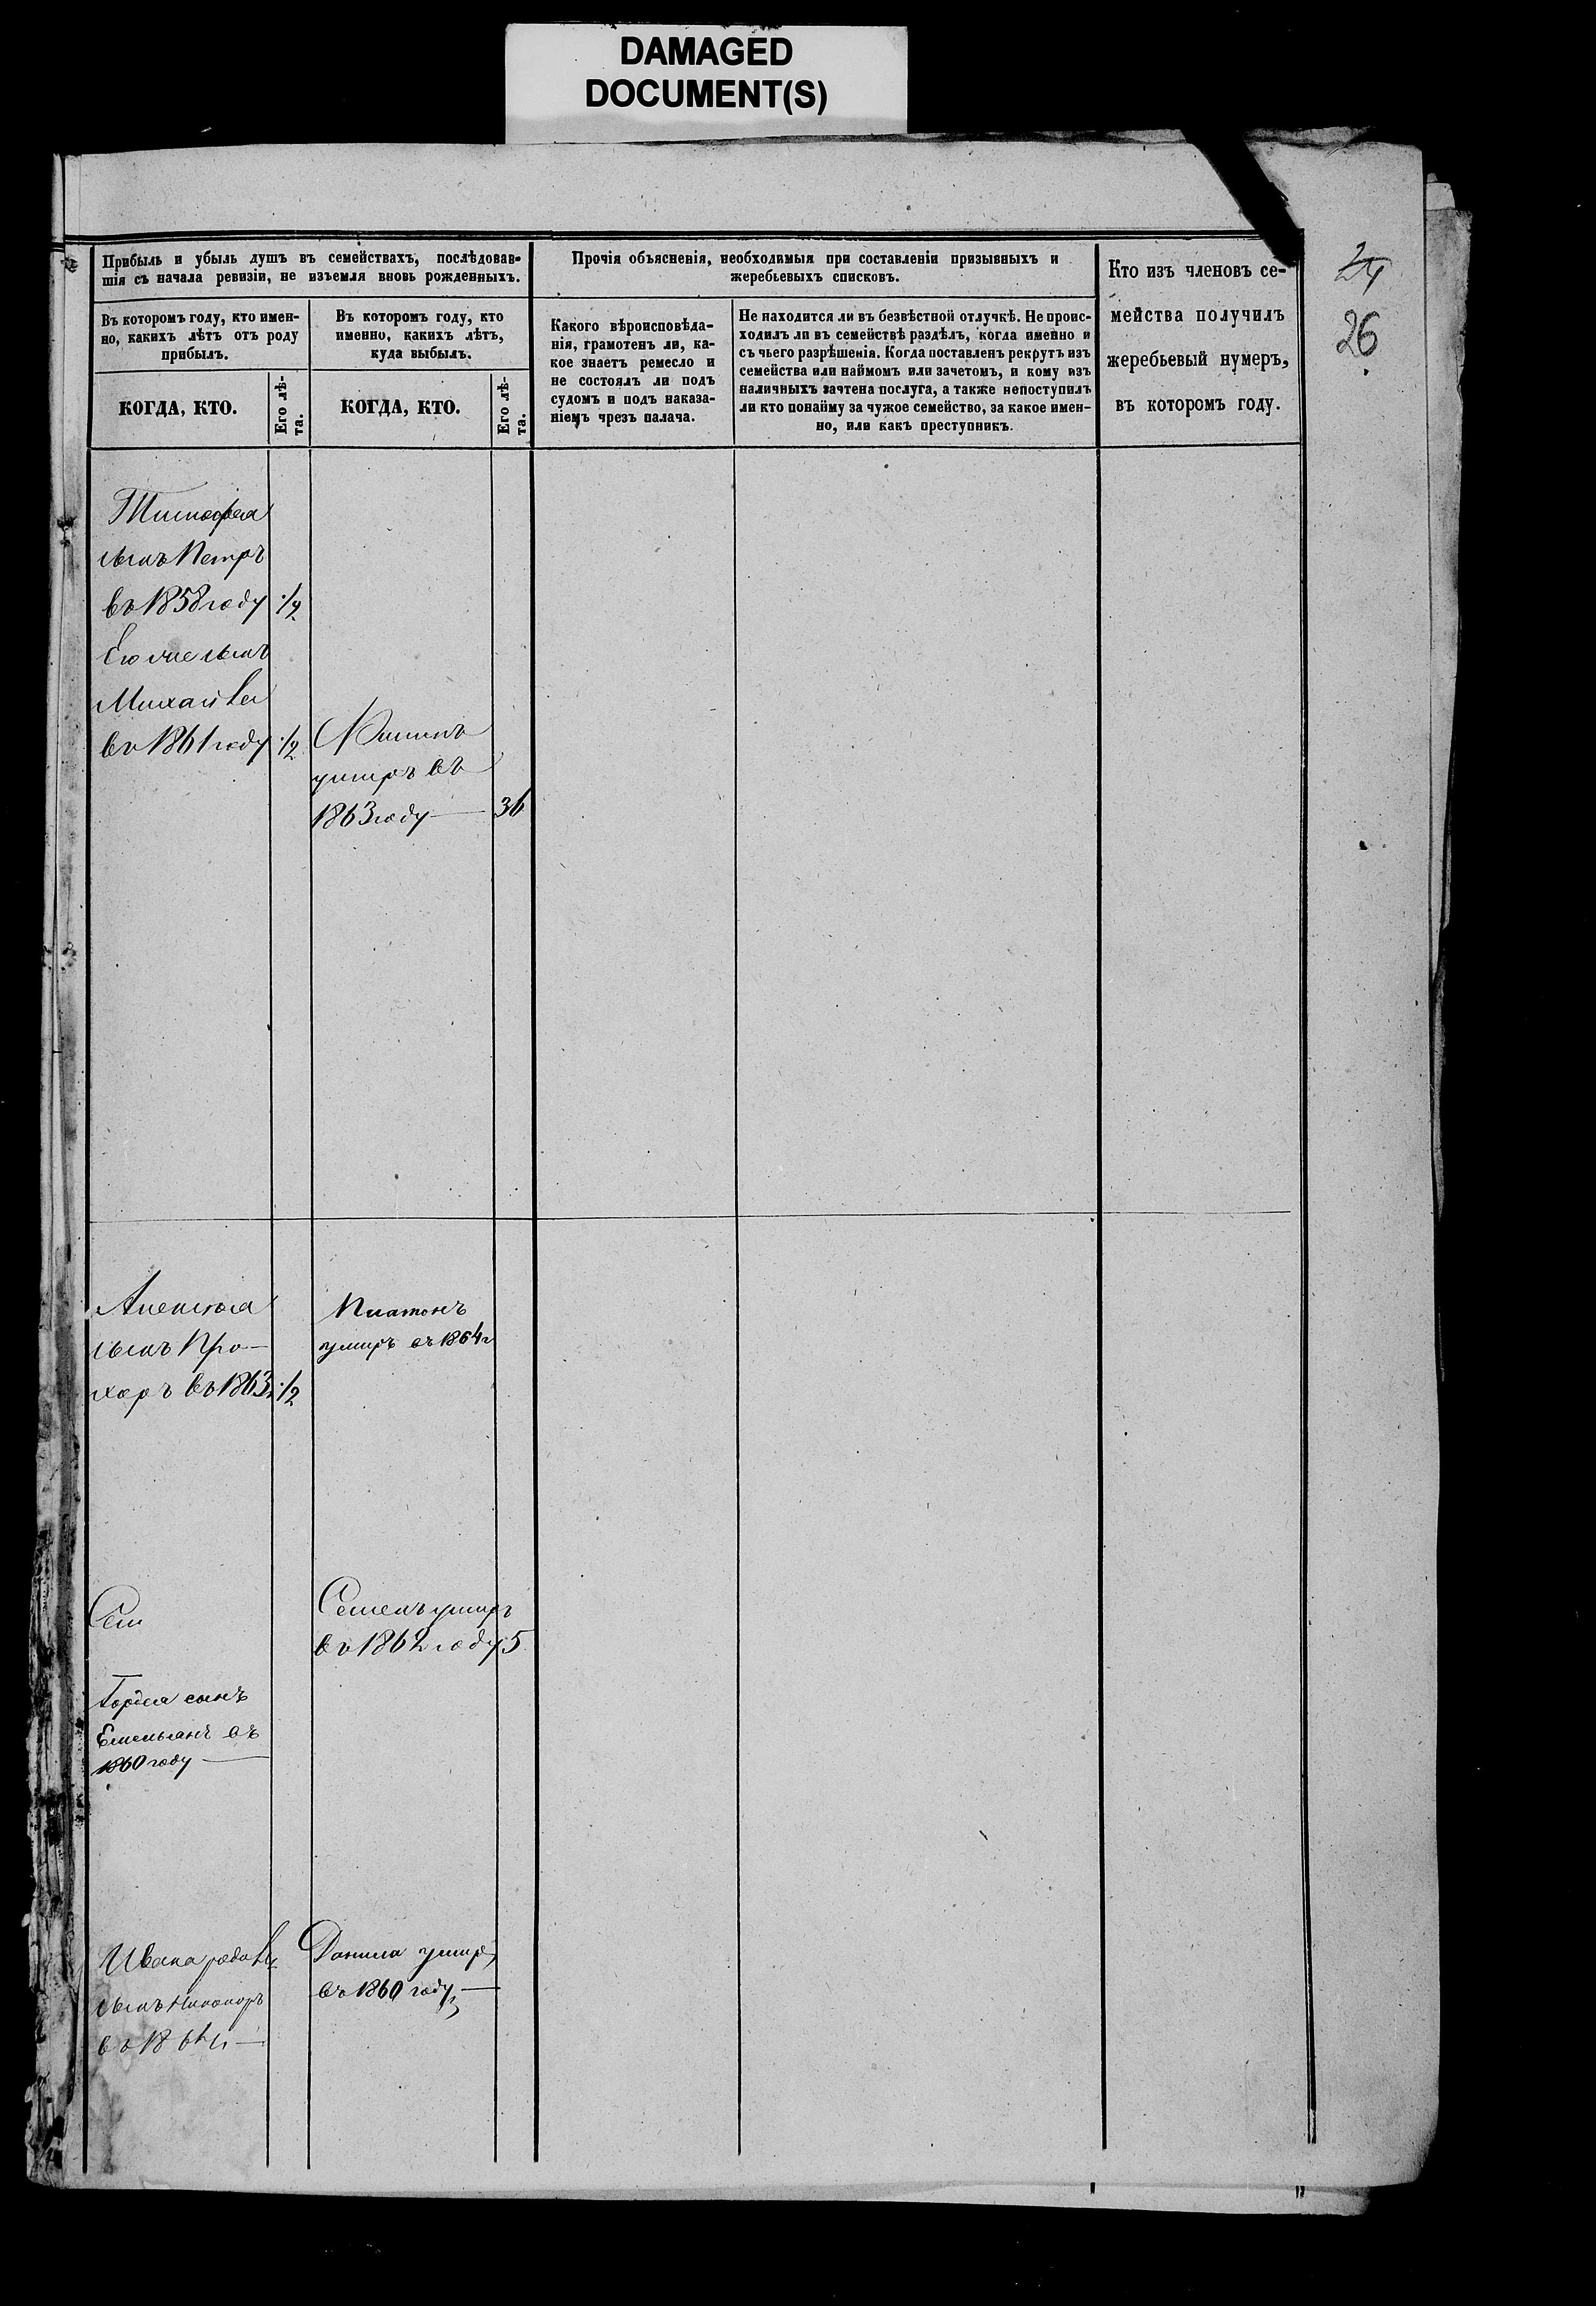 DAMAGED
DOCUMENT(S)
Прибыль и убыль душъ въ семействахъ, послѣдовав-
шія съ начала ревизіи, не изъемля вновь рожденныхъ.
Прочія объясненія, необходимыя при составленіи призывныхъ и
жеребьевыхъ списковъ.
Кто изъ членовъ се-
мейства получилъ
жеребьевый нумеръ,
въ которомъ году.
24
26
Въ которомъ году, кто имен-
но, какихъ лѣтъ отъ роду
прибылъ.
Въ которомъ году, кто
именно, какихъ лѣтъ,
куда выбылъ.
Какого вѣроисповѣда-
нія, грамотенъ ли, ка-
кое знаетъ ремесло и
не состоялъ ли подъ
судомъ и подъ наказа-
ніемъ чрезъ палача.
Не находится ли въ безвѣстной отлучкѣ. Не проис-
ходилъ ли въ семействѣ раздѣлъ, когда именно и
съ чьего разрѣшенія. Когда поставленъ рекрутъ изъ
семейства или наймомъ или зачетомъ, и кому изъ
наличныхъ зачтена послуга, а также непоступилъ
ли кто понайму за чужое семейство, за какое имен-
но, или какъ преступникъ.
КОГДА, КТО.
Его лѣ-
та.
КОГДА, КТО.
Его лѣ-
та.
Тимофея
сынъ Петръ
въ 1858 году 1/2
Его же сынъ
Михайла
въ 1861 году 1/2
умиръ въ
1863 году — 36
Алексѣя
сынъ Про-
хоръ въ 1863 г 1/2
Платонъ
умиръ въ 1864 г
Сем
Семенъ умиръ
въ 1862 году 5
Гордея сынъ
Емельянъ въ
1860 году —
Ивана
сынъ Никаноръ
въ 1864 г —
Данила умиръ
въ 1860 году —